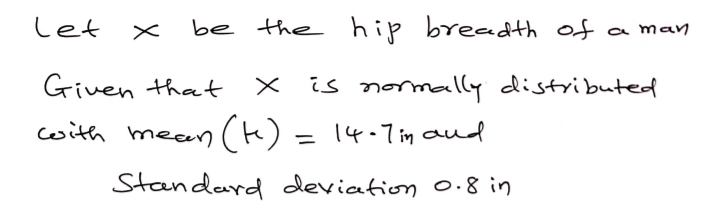 Let x be the hip breadth of a man
Given that X is normally distributed
with mean (μ) = 14.7 in and
Standard deviation 0.8 in